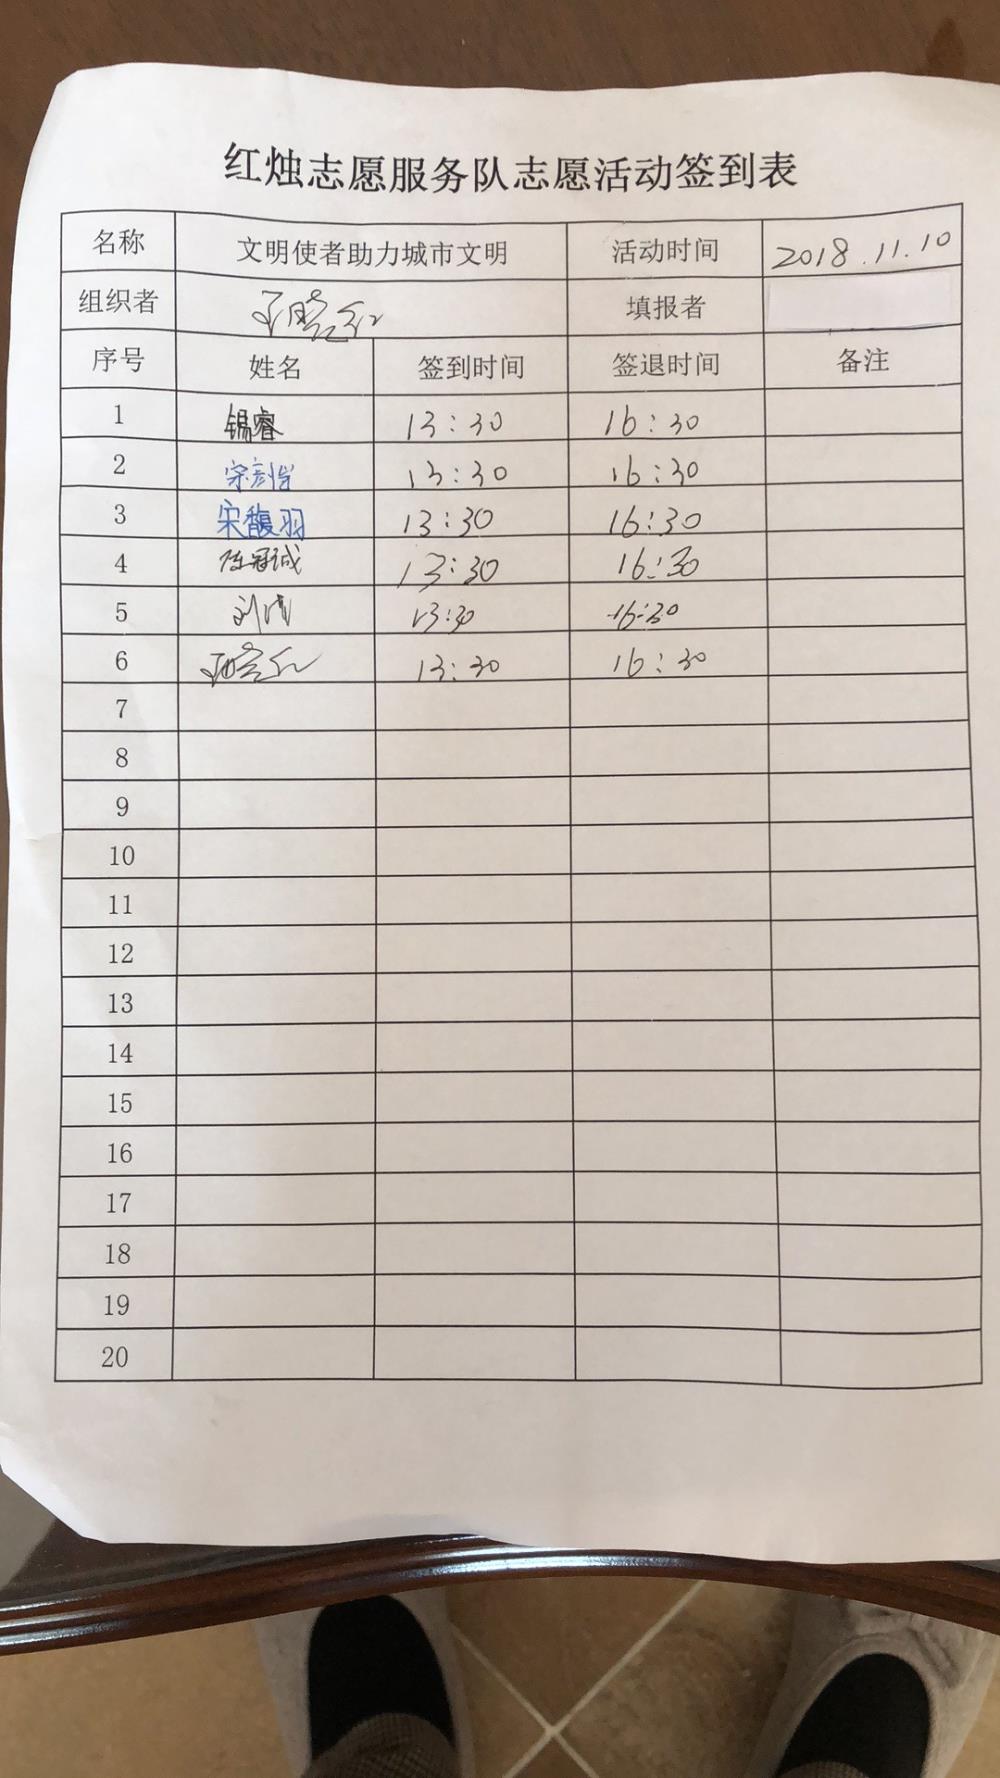 红烛志愿服务队志愿活动签到表
名称 文明使者助力城市文明 活动时间 2018.11.10
组织者 填报者
序号 姓名 签到时间 签退时间 备注
1 锡睿 13:30 16:30
2 宋彦怡 13:30 16:30
3 宋馥羽 13:30 16:30
4 陈冠诚 13:30 16:30
5 刘倩 13:30 16:30
6 13:30 16:30
7
8
9
10
11
12
13
14
15
16
17
18
19
20